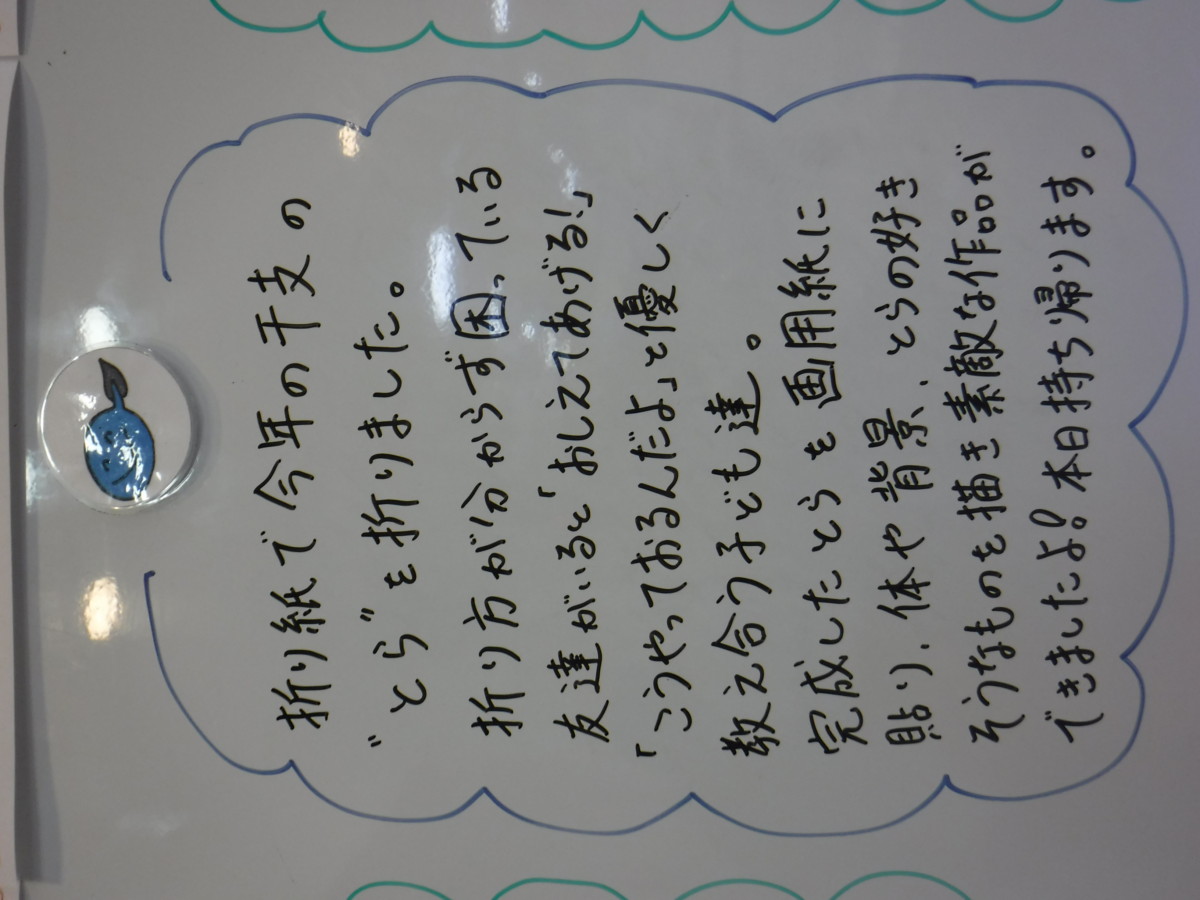 折り紙で今年の干支の
"とら"を折りました。
折り方が分からず困っている
友達がいると「おしえてあげる!」
「こうやっておるんだよ」と優しく
教え合う子ども達。
完成したとらを画用紙に
貼り、体や背景、とらの好き
そうなものを描き素敵な作品が
できましたよ!本日持ち帰ります。